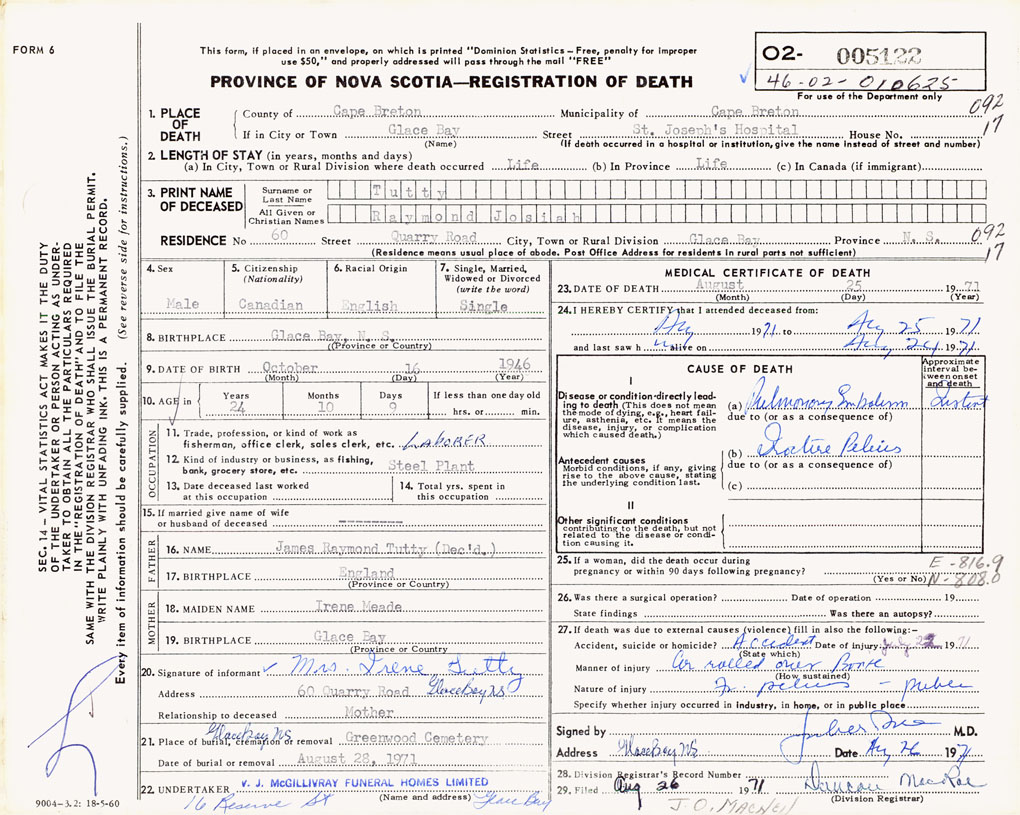 FORM 6
This form, if placed in an envelope, on which is printed "Dominion Statistics – Free, penalty for improper
use $50," and properly addressed will pass through the mail "FREE"
PROVINCE OF NOVA SCOTIA—REGISTRATION OF DEATH
02- 005122
46-02-010625
For use of the Department only
092
17
1. PLACE OF DEATH
County of Cape Breton Municipality of Cape Breton
If in City or Town Glace Bay Street St. Joseph's Hospital House No.
(Name) (If death occurred in a hospital or institution, give the name instead of street and number)
2. LENGTH OF STAY (in years, months and days)
(a) In City, Town or Rural Division where death occurred Life (b) In Province Life (c) In Canada (if immigrant)
3. PRINT NAME OF DECEASED
Surname or Last Name Tutty
All Given or Christian Names Raymond Josiah
RESIDENCE No 60 Street Quarry Road City, Town or Rural Division Glace Bay Province N. S.
092
17
(Residence means usual place of abode. Post Office Address for residents in rural parts not sufficient)
4. Sex
Male
5. Citizenship (Nationality)
Canadian
6. Racial Origin
English
7. Single, Married, Widowed or Divorced (write the word)
Single
8. BIRTHPLACE Glace Bay, N. S.
(Province or Country)
9. DATE OF BIRTH October 16 1946
(Month) (Day) (Year)
10. AGE in Years Months Days If less than one day old
24 10 9 hrs. or min.
OCCUPATION
11. Trade, profession, or kind of work as
fisherman, office clerk, sales clerk, etc. LABORER
12. Kind of industry or business, as fishing,
bank, grocery store, etc. Steel Plant
13. Date deceased last worked at this occupation
14. Total yrs. spent in this occupation
15. If married give name of wife
or husband of deceased -----
FATHER
16. NAME James Raymond Tutty (Dec'd.)
17. BIRTHPLACE England
(Province or Country)
MOTHER
18. MAIDEN NAME Irene Meade
19. BIRTHPLACE Glace Bay
(Province or Country)
20. Signature of informant Mrs. Irene Tutty
Address 60 Quarry Road Glace Bay NS
Relationship to deceased Mother
21. Place of burial, cremation or removal Greenwood Cemetery
Glace Bay NS
Date of burial or removal August 28, 1971
22. UNDERTAKER V. J. McGILLIVRAY FUNERAL HOMES LIMITED
(Name and address)
16 Reserve St Glace Bay
MEDICAL CERTIFICATE OF DEATH
23. DATE OF DEATH August 25 1971
(Month) (Day) (Year)
24. I HEREBY CERTIFY that I attended deceased from:
1971 to Aug 25 1971
and last saw h alive on Aug 1971
CAUSE OF DEATH
Approximate interval between onset and death
I
Disease or condition directly leading to death (This does not mean the mode of dying, e.g., heart failure, asthenia, etc. It means the disease, injury, or complication which caused death.)
(a) Pulmonary Embolism
due to (or as a consequence of)
Antecedent causes
Morbid conditions, if any, giving rise to the above cause, stating the underlying condition last.
(b) Pelvis
due to (or as a consequence of)
(c)
II
Other significant conditions
contributing to the death, but not related to the disease or condition causing it.
25. If a woman, did the death occur during
pregnancy or within 90 days following pregnancy?
(Yes or No)
E -816.9
N-808.0
26. Was there a surgical operation? Date of operation 19
State findings Was there an autopsy?
27. If death was due to external causes (violence) fill in also the following:–
Accident, suicide or homicide? Accident Date of injury July 1971
(State which)
Manner of injury Car rolled over
(How sustained)
Nature of injury Fr. pelvis
Specify whether injury occurred in industry, in home, or in public place
Signed by M.D.
Address Glace Bay NS Date Aug 26 1971
28. Division Registrar's Record Number
29. Filed Aug 26 1971 Duncan MacRae
(Division Registrar)
J. O. MacNeil
SEC. 14 – VITAL STATISTICS ACT MAKES IT THE DUTY
OF THE UNDERTAKER OR PERSON ACTING AS UNDER-
TAKER TO OBTAIN ALL THE PARTICULARS REQUIRED
IN THE "REGISTRATION OF DEATH" AND TO FILE THE
SAME WITH THE DIVISION REGISTRAR WHO SHALL ISSUE THE BURIAL PERMIT.
WRITE PLAINLY WITH UNFADING INK. THIS IS A PERMANENT RECORD.
Every item of information should be carefully supplied. (See reverse side for instructions.)
9004–3.2: 18-5-60